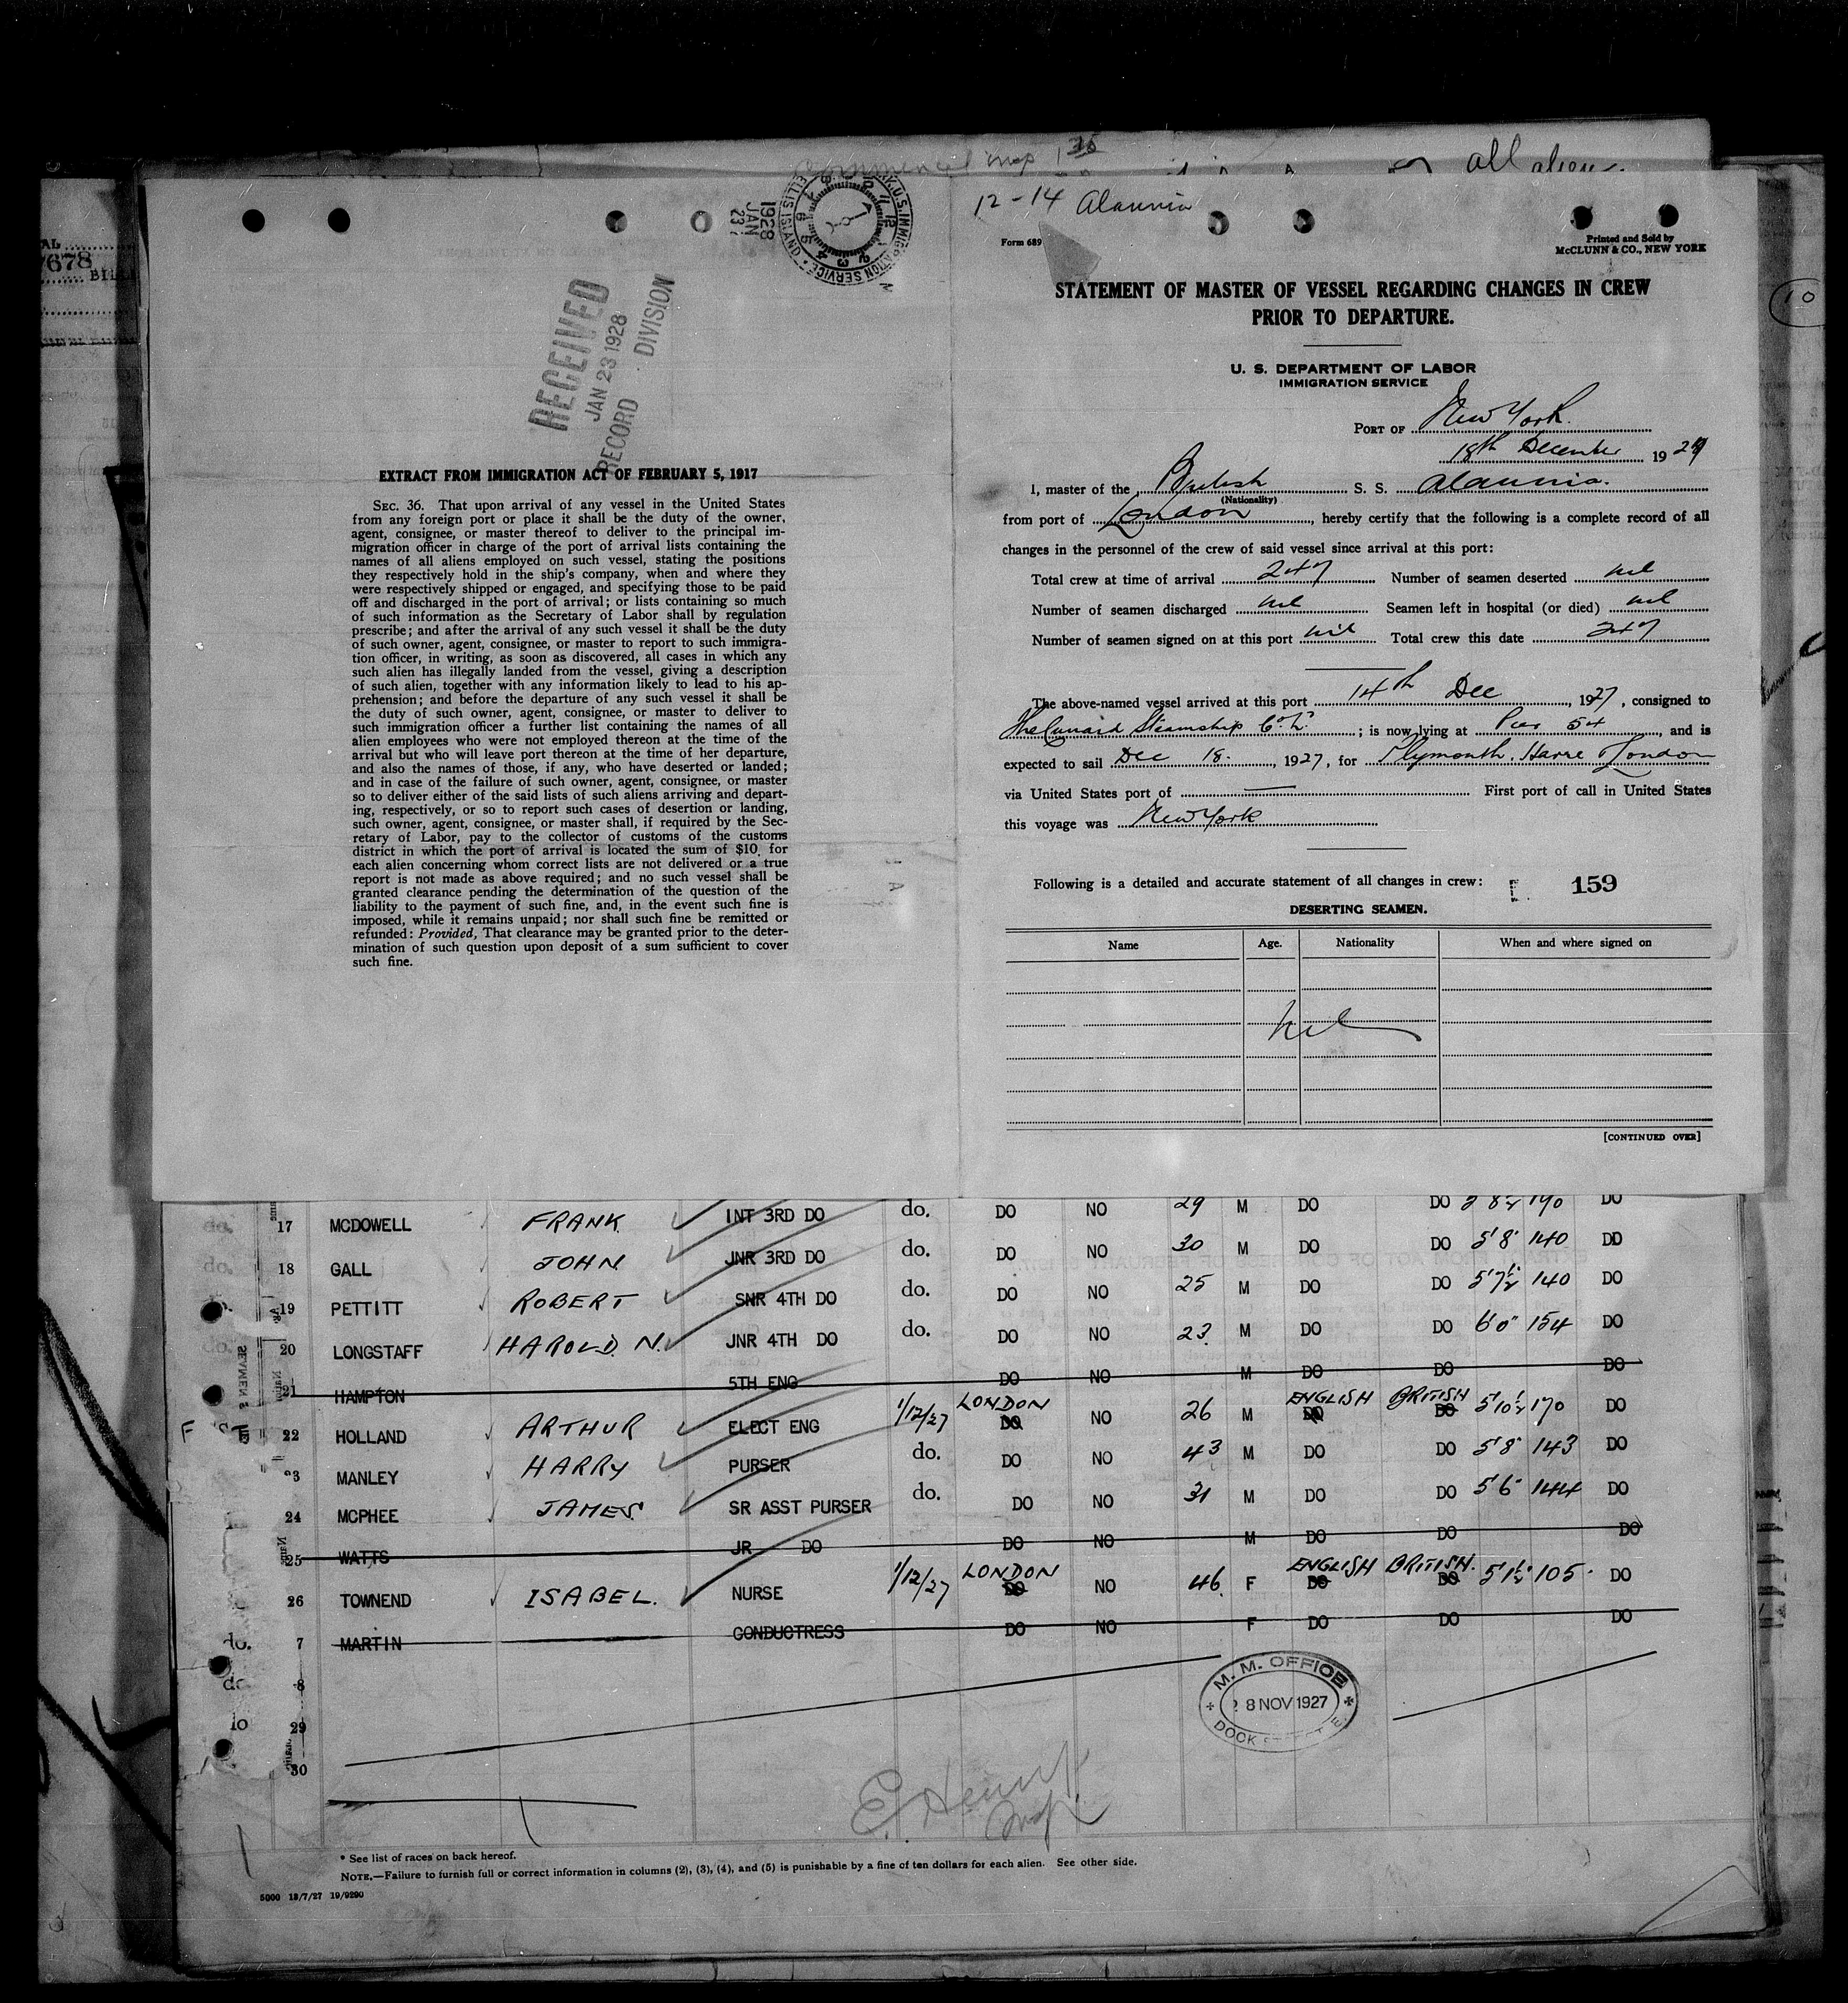 all alien
12-14 Alaunia
1928
JAN
23
U.S. IMMIGRATION SERVICE
ELLIS ISLAND
Form 689
Printed and Sold by
McCLUNN & CO., NEW YORK
RECEIVED
JAN 23 1928
RECORD DIVISION
EXTRACT FROM IMMIGRATION ACT OF FEBRUARY 5, 1917
SEC. 36. That upon arrival of any vessel in the United States
from any foreign port or place it shall be the duty of the owner,
agent, consignee, or master thereof to deliver to the principal im-
migration officer in charge of the port of arrival lists containing the
names of all aliens employed on such vessel, stating the positions
they respectively hold in the ship's company, when and where they
were respectively shipped or engaged, and specifying those to be paid
off and discharged in the port of arrival; or lists containing so much
of such information as the Secretary of Labor shall by regulation
prescribe; and after the arrival of any such vessel it shall be the duty
of such owner, agent, consignee, or master to report to such immigra-
tion officer, in writing, as soon as discovered, all cases in which any
such alien has illegally landed from the vessel, giving a description
of such alien, together with any information likely to lead to his ap-
prehension; and before the departure of any such vessel it shall be
the duty of such owner, agent, consignee, or master to deliver to
such immigration officer a further list containing the names of all
alien employees who were not employed thereon at the time of the
arrival but who will leave port thereon at the time of her departure,
and also the names of those, if any, who have deserted or landed;
and in case of the failure of such owner, agent, consignee, or master
so to deliver either of the said lists of such aliens arriving and depart-
ing, respectively, or so to report such cases of desertion or landing,
such owner, agent, consignee, or master shall, if required by the Sec-
retary of Labor, pay to the collector of customs of the customs
district in which the port of arrival is located the sum of $10, for
each alien concerning whom correct lists are not delivered or a true
report is not made as above required; and no such vessel shall be
granted clearance pending the determination of the question of the
liability to the payment of such fine, and, in the event such fine is
imposed, while it remains unpaid; nor shall such fine be remitted or
refunded: Provided, That clearance may be granted prior to the deter-
mination of such question upon deposit of a sum sufficient to cover
such fine.
STATEMENT OF MASTER OF VESSEL REGARDING CHANGES IN CREW
PRIOR TO DEPARTURE.
U. S. DEPARTMENT OF LABOR
IMMIGRATION SERVICE
PORT OF New York.
18th December 1927
I, master of the British S. S. Alaunia.
(Nationality)
from port of London, hereby certify that the following is a complete record of all
changes in the personnel of the crew of said vessel since arrival at this port:
Total crew at time of arrival 247 Number of seamen deserted nil
Number of seamen discharged nil Seamen left in hospital (or died) nil
Number of seamen signed on at this port nil Total crew this date 247
The above-named vessel arrived at this port 14th Dec, 1927, consigned to
The Cunard Steamship Co. L.; is now lying at Pier 54, and is
expected to sail Dec 18., 1927, for Plymouth, Havre London
via United States port of — First port of call in United States
this voyage was New York
Following is a detailed and accurate statement of all changes in crew: 159
DESERTING SEAMEN.
Name Age. Nationality When and where signed on
nil
[CONTINUED OVER]
17 MCDOWELL FRANK INT 3RD DO do. DO NO 29 M DO DO 5'8½ 190 DO
18 GALL JOHN JNR 3RD DO do. DO NO 30 M DO DO 5'8" 140 DO
19 PETTITT ROBERT SNR 4TH DO do. DO NO 25 M DO DO 5'7½ 140 DO
20 LONGSTAFF HAROLD N. JNR 4TH DO do. DO NO 23 M DO DO 6'0" 154 DO
21 HAMPTON 5TH ENG DO NO M DO DO DO
22 HOLLAND ARTHUR ELECT ENG 1/12/27 LONDON DO NO 26 M ENGLISH DO BRITISH DO 5'10½ 170 DO
23 MANLEY HARRY PURSER do. DO NO 43 M DO DO 5'8" 143 DO
24 MCPHEE JAMES SR ASST PURSER do. DO NO 31 M DO DO 5'6" 144 DO
25 WATTS JR DO DO NO M DO DO DO
26 TOWNEND ISABEL. NURSE 1/12/27 LONDON DO NO 46 F ENGLISH DO BRITISH. DO 5'1½" 105 DO
7 MARTIN CONDUCTRESS DO NO F DO DO DO
8
29
30
M. M. OFFICE
28 NOV 1927
DOCK
* See list of races on back hereof.
NOTE.—Failure to furnish full or correct information in columns (2), (3), (4), and (5) is punishable by a fine of ten dollars for each alien. See other side.
5000 18/7/27 19/9290